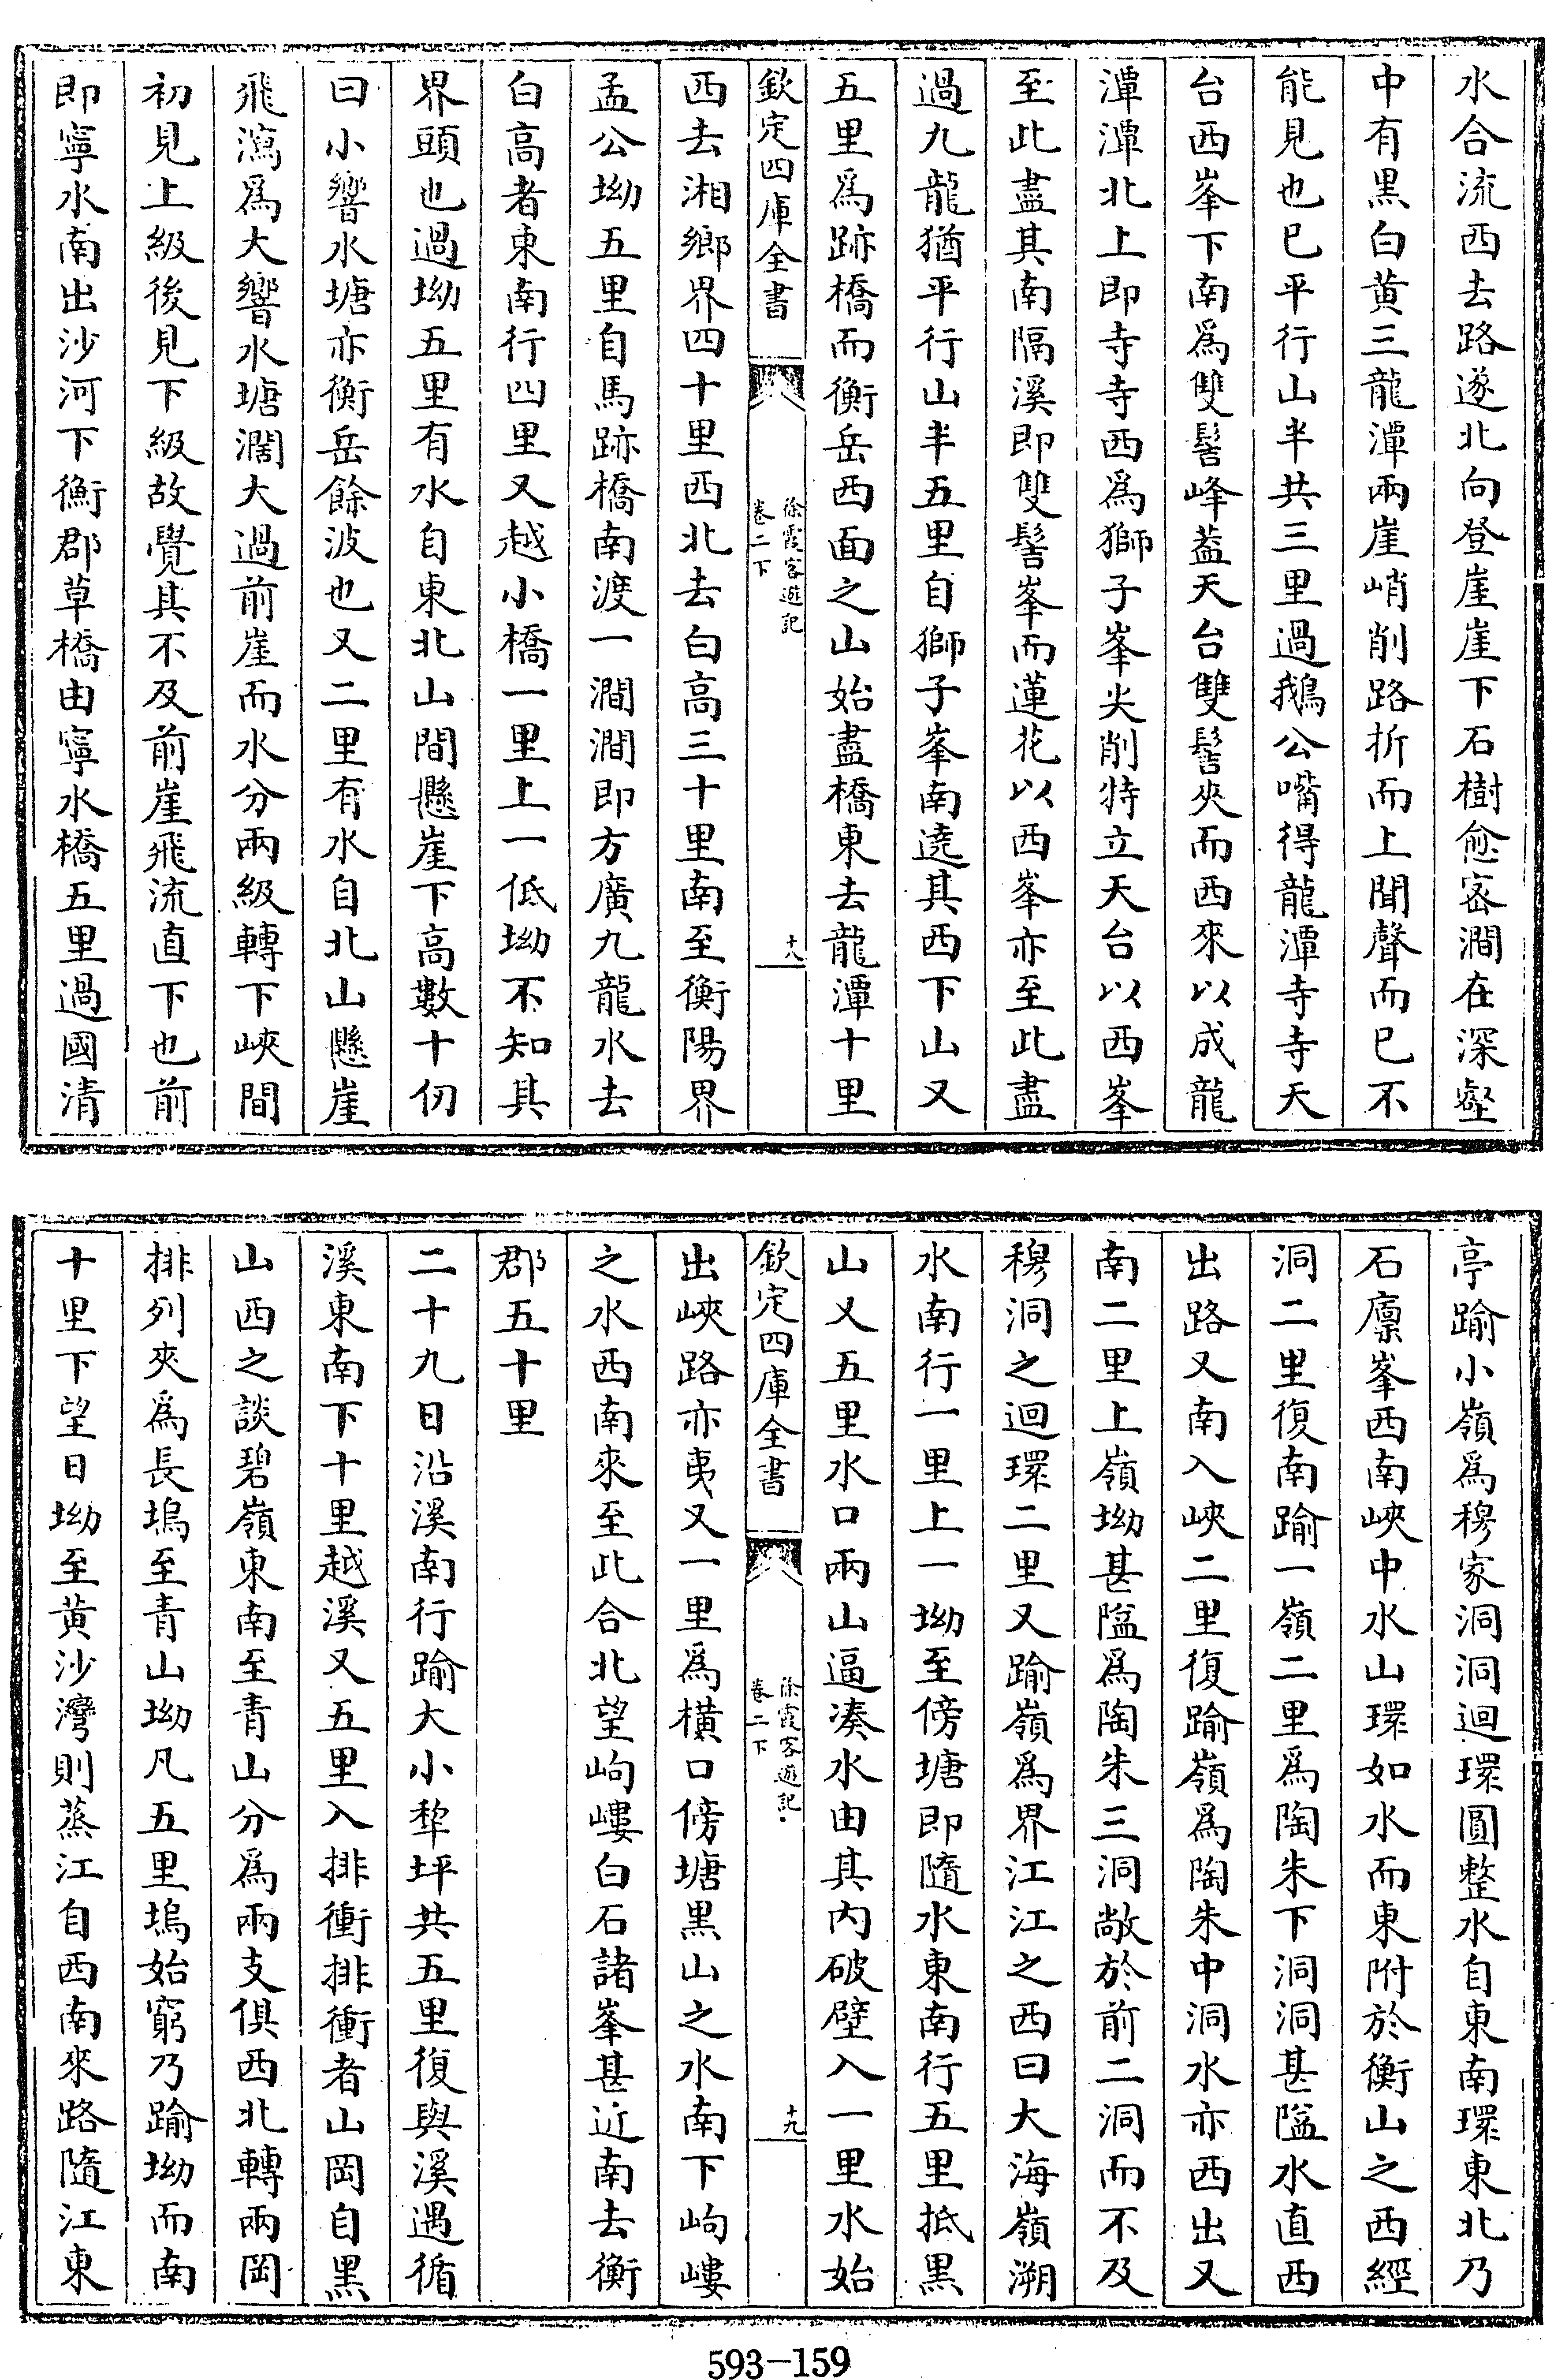 水合流西去路遂北向登崖崖下石樹愈密澗在深壑
中有黑白黄三龍潭兩崖峭削路折而上聞聲而已不
能見也已平行山半共三里過鵝公嘴得龍潭寺寺天
台西峯下南爲雙髻峰葢天台雙髻夾而西來以成龍
潭潭北上即寺寺西爲獅子峯尖削特立天台以西峯
至此盡其南隔溪即雙髻峯而蓮花以西峯亦至此盡
過九龍猶平行山半五里自獅子峯南遶其西下山又
五里爲跡橋而衡岳西面之山始盡橋東去龍潭十里
欽定四庫全書
徐霞客遊記
卷二下
十八
西去湘鄉界四十里西北去白高三十里南至衡陽界
孟公坳五里自馬跡橋南渡一澗澗即方廣九龍水去
白高者東南行四里又越小橋一里上一低坳不知其
界頭也過坳五里有水自東北山間懸崖下高數十仞
曰小響水塘亦衡岳餘波也又二里有水自北山懸崖
飛瀉爲大響水塘濶大過前崖而水分兩級轉下峽間
初見上級後見下級故覺其不及前崖飛流直下也前
即寧水南出沙河下衡郡草橋由寧水橋五里過國清
亭踰小嶺爲穆家洞洞迴環圓整水自東南環東北乃
石廪峯西南峽中水山環如水而東附於衡山之西經
洞二里復南踰一嶺二里爲陶朱下洞洞甚隘水直西
出路又南入峽二里復踰嶺爲陶朱中洞水亦西出又
南二里上嶺坳甚隘爲陶朱三洞敞於前二洞而不及
穆洞之迴環二里又踰嶺爲界江江之西曰大海嶺溯
水南行一里上一坳至傍塘即隨水東南行五里抵黑
山又五里水口兩山逼凑水由其内破壁入一里水始
欽定四庫全書
徐霞客遊記
卷二下
十九
出峽路亦夷又一里爲橫口傍塘黑山之水南下岣嶁
之水西南來至此合北望岣嶁白石諸峯甚近南去衡
郡五十里
二十九日沿溪南行踰大小犂坪共五里復與溪遇循
溪東南下十里越溪又五里入排衝排衝者山岡自黑
山西之談碧嶺東南至青山分爲兩支俱西北轉兩岡
排列夾爲長塢至青山坳凡五里塢始窮乃踰坳而南
十里下望日坳至黄沙灣則蒸江自西南來路隨江東
593—159